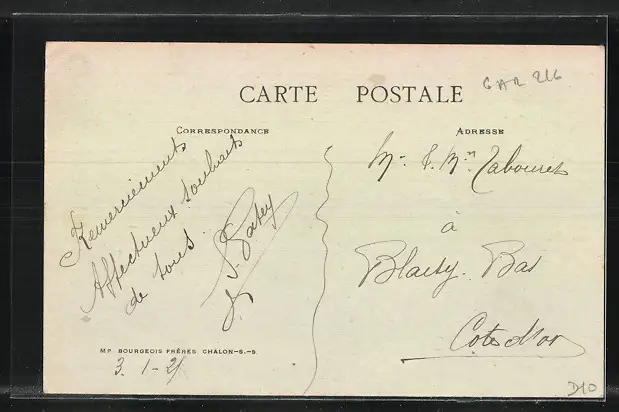 GAR 216
CARTE POSTALE
CORRESPONDANCE
ADRESSE
Remerciements
Affectueux souhaits
de tous.
J. Patey
Mr & Mme Tabouret
à
Blaisy. Bas
Cote d'or
MP BOURGEOIS FRÈRES CHALON-S.-S.
3. 1 - 21
D10